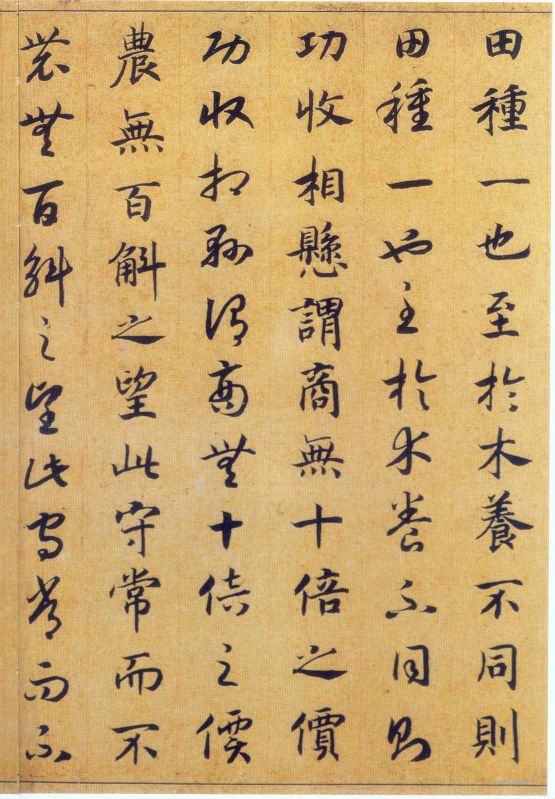 田種一也至於木養不同則
田種一也至於木養不同則
功收相懸謂商無十倍之價
功收相懸謂商無十倍之價
農無百斛之望此守常而不
農無百斛之望此守常而不